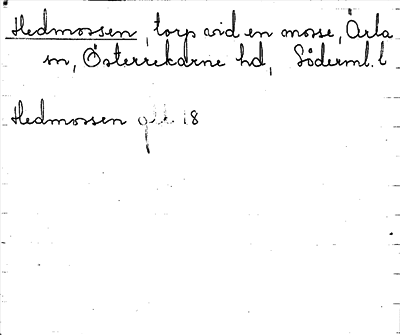 Hedmossen, torp vid en mosse, Ärla
sn, Österrekarne hd, Söderml. l
Hedmossen glk 18